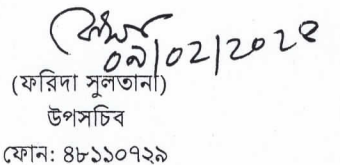 ০৯/০২/২০২৫
(ফরিদা সুলতানা)
উপসচিব
ফোন: ৪৮১১০৭২৯